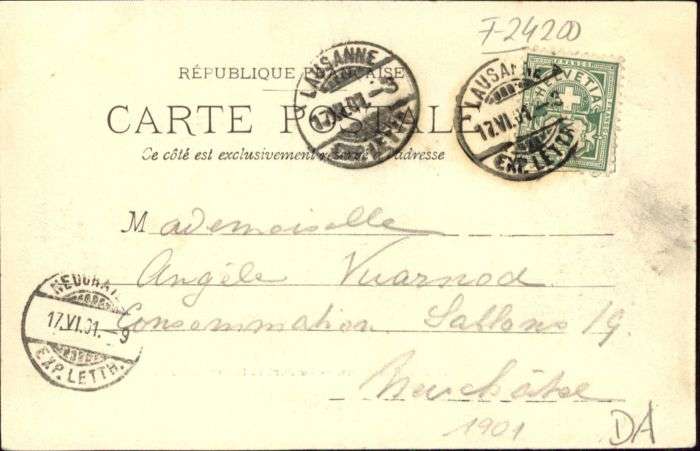 F-24200
RÉPUBLIQUE FRANÇAISE
CARTE POSTALE
Ce côté est exclusivement réservé à l'adresse
LAUSANNE
17.VI.01.
EXP. LETTR.
LAUSANNE
17.VI.01.
EXP. LETTR.
FRANCO
HELVETIA
Mademoiselle
Angèle Vuarnod
Consommation Sablons 19.
Neuchâtel
NEUCHÂTEL
17.VI.01. – 9
EXP. LETTR.
1901
DA